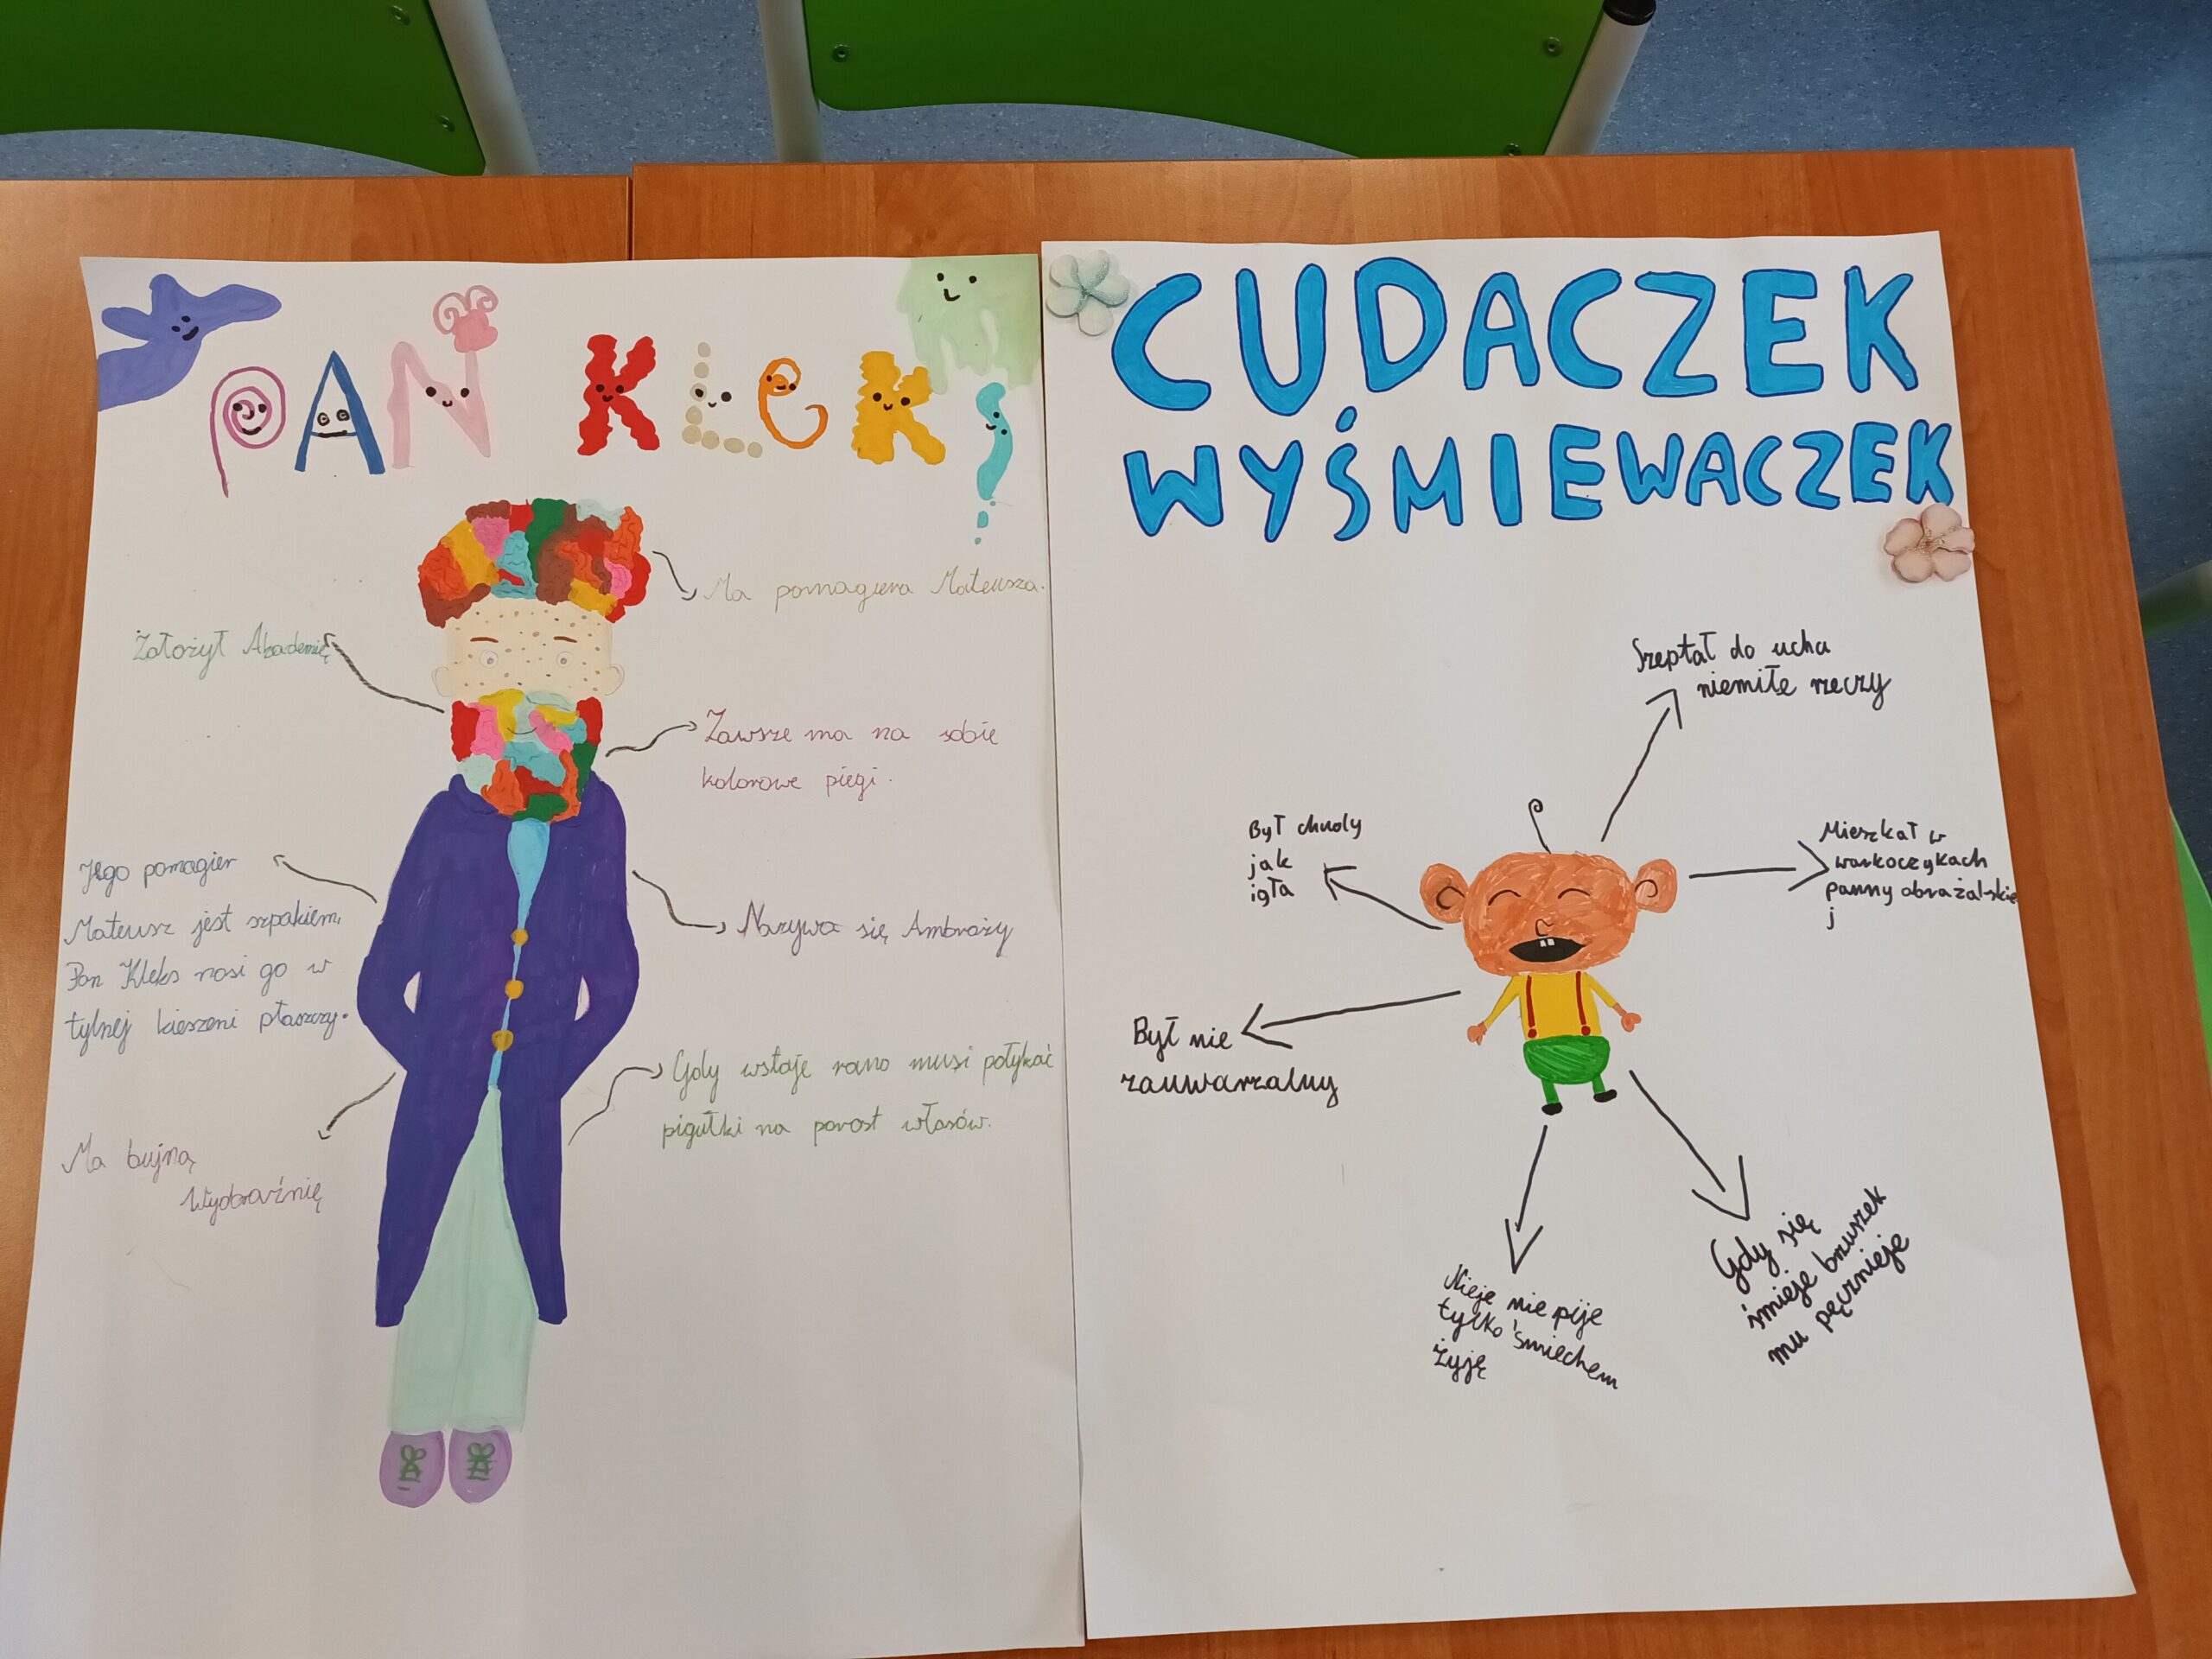 PAN KLEKS
Ma pomagiera Mateusza.
Żałożył Akademię
Zawsze ma na sobie
kolorowe piegi.
Jego pomagier
Mateusz jest szpakiem.
Pan Kleks nosi go w
tylnej kieszeni płaszczy.
Nazywa się Ambroży
Gdy wstaje rano musi połykać
pigułki na porost włosów.
Ma bujną
Wyobraźnię
CUDACZEK
WYŚMIEWACZEK
Szeptał do ucha
niemiłe rzeczy
Był chudy
jak
igła
Mieszkał w
warkoczykach
panny obrażalskie
j
Był nie
zauwarzalny
Nieje nie pije
tylko śmiechem
żyję
Gdy się
śmieje brzuszek
mu pęcznieje